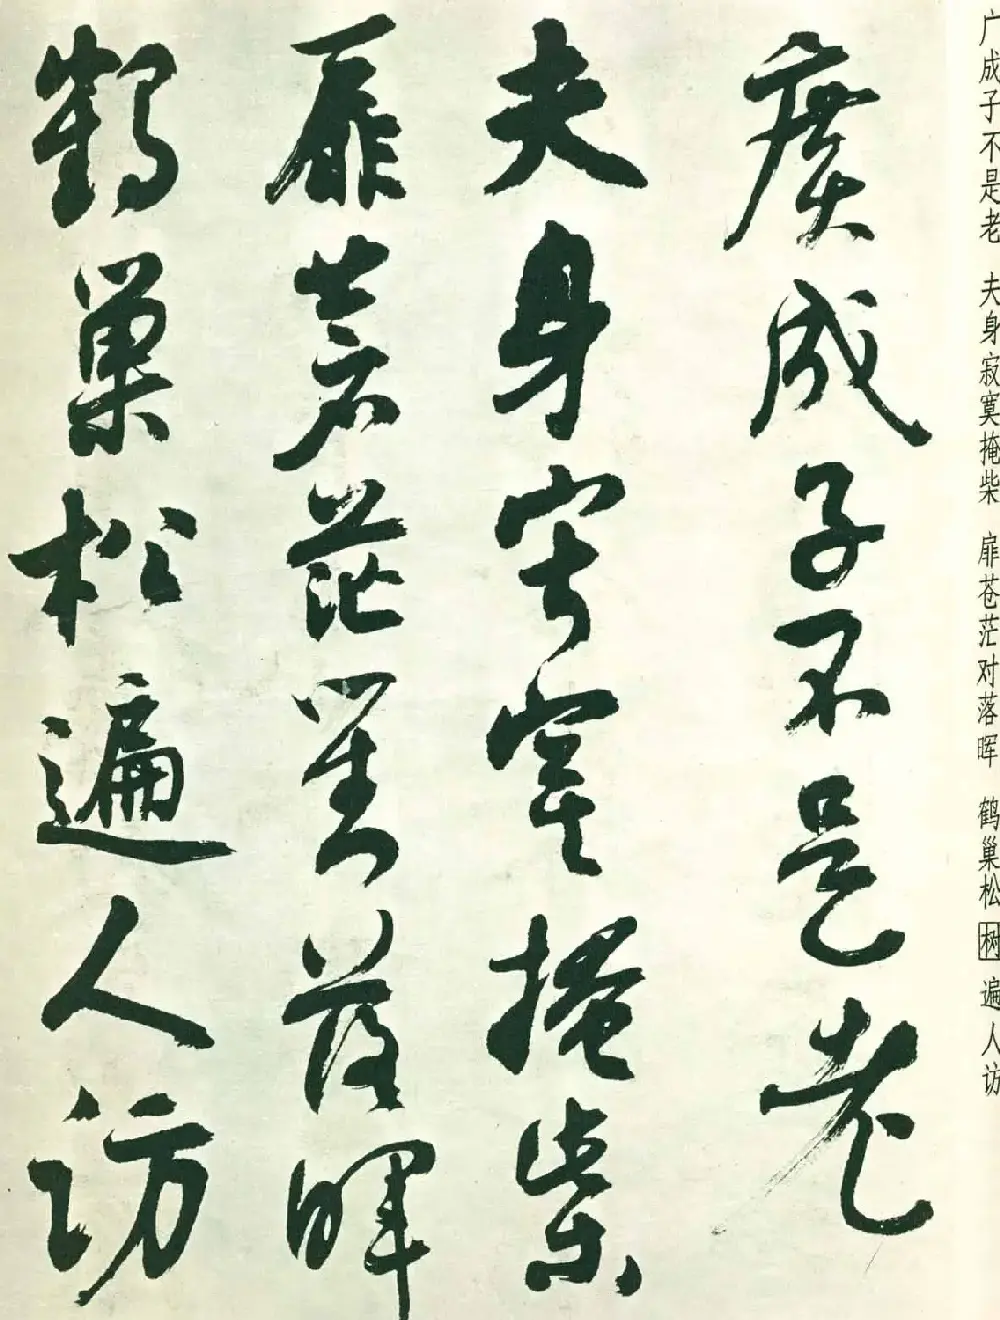 广成子不是老　夫身寂寞掩柴　扉苍茫对落晖　鹤巢松树遍人访
廣成子不是老
夫身寂寞掩柴
扉蒼茫對落暉
鶴巢松遍人訪